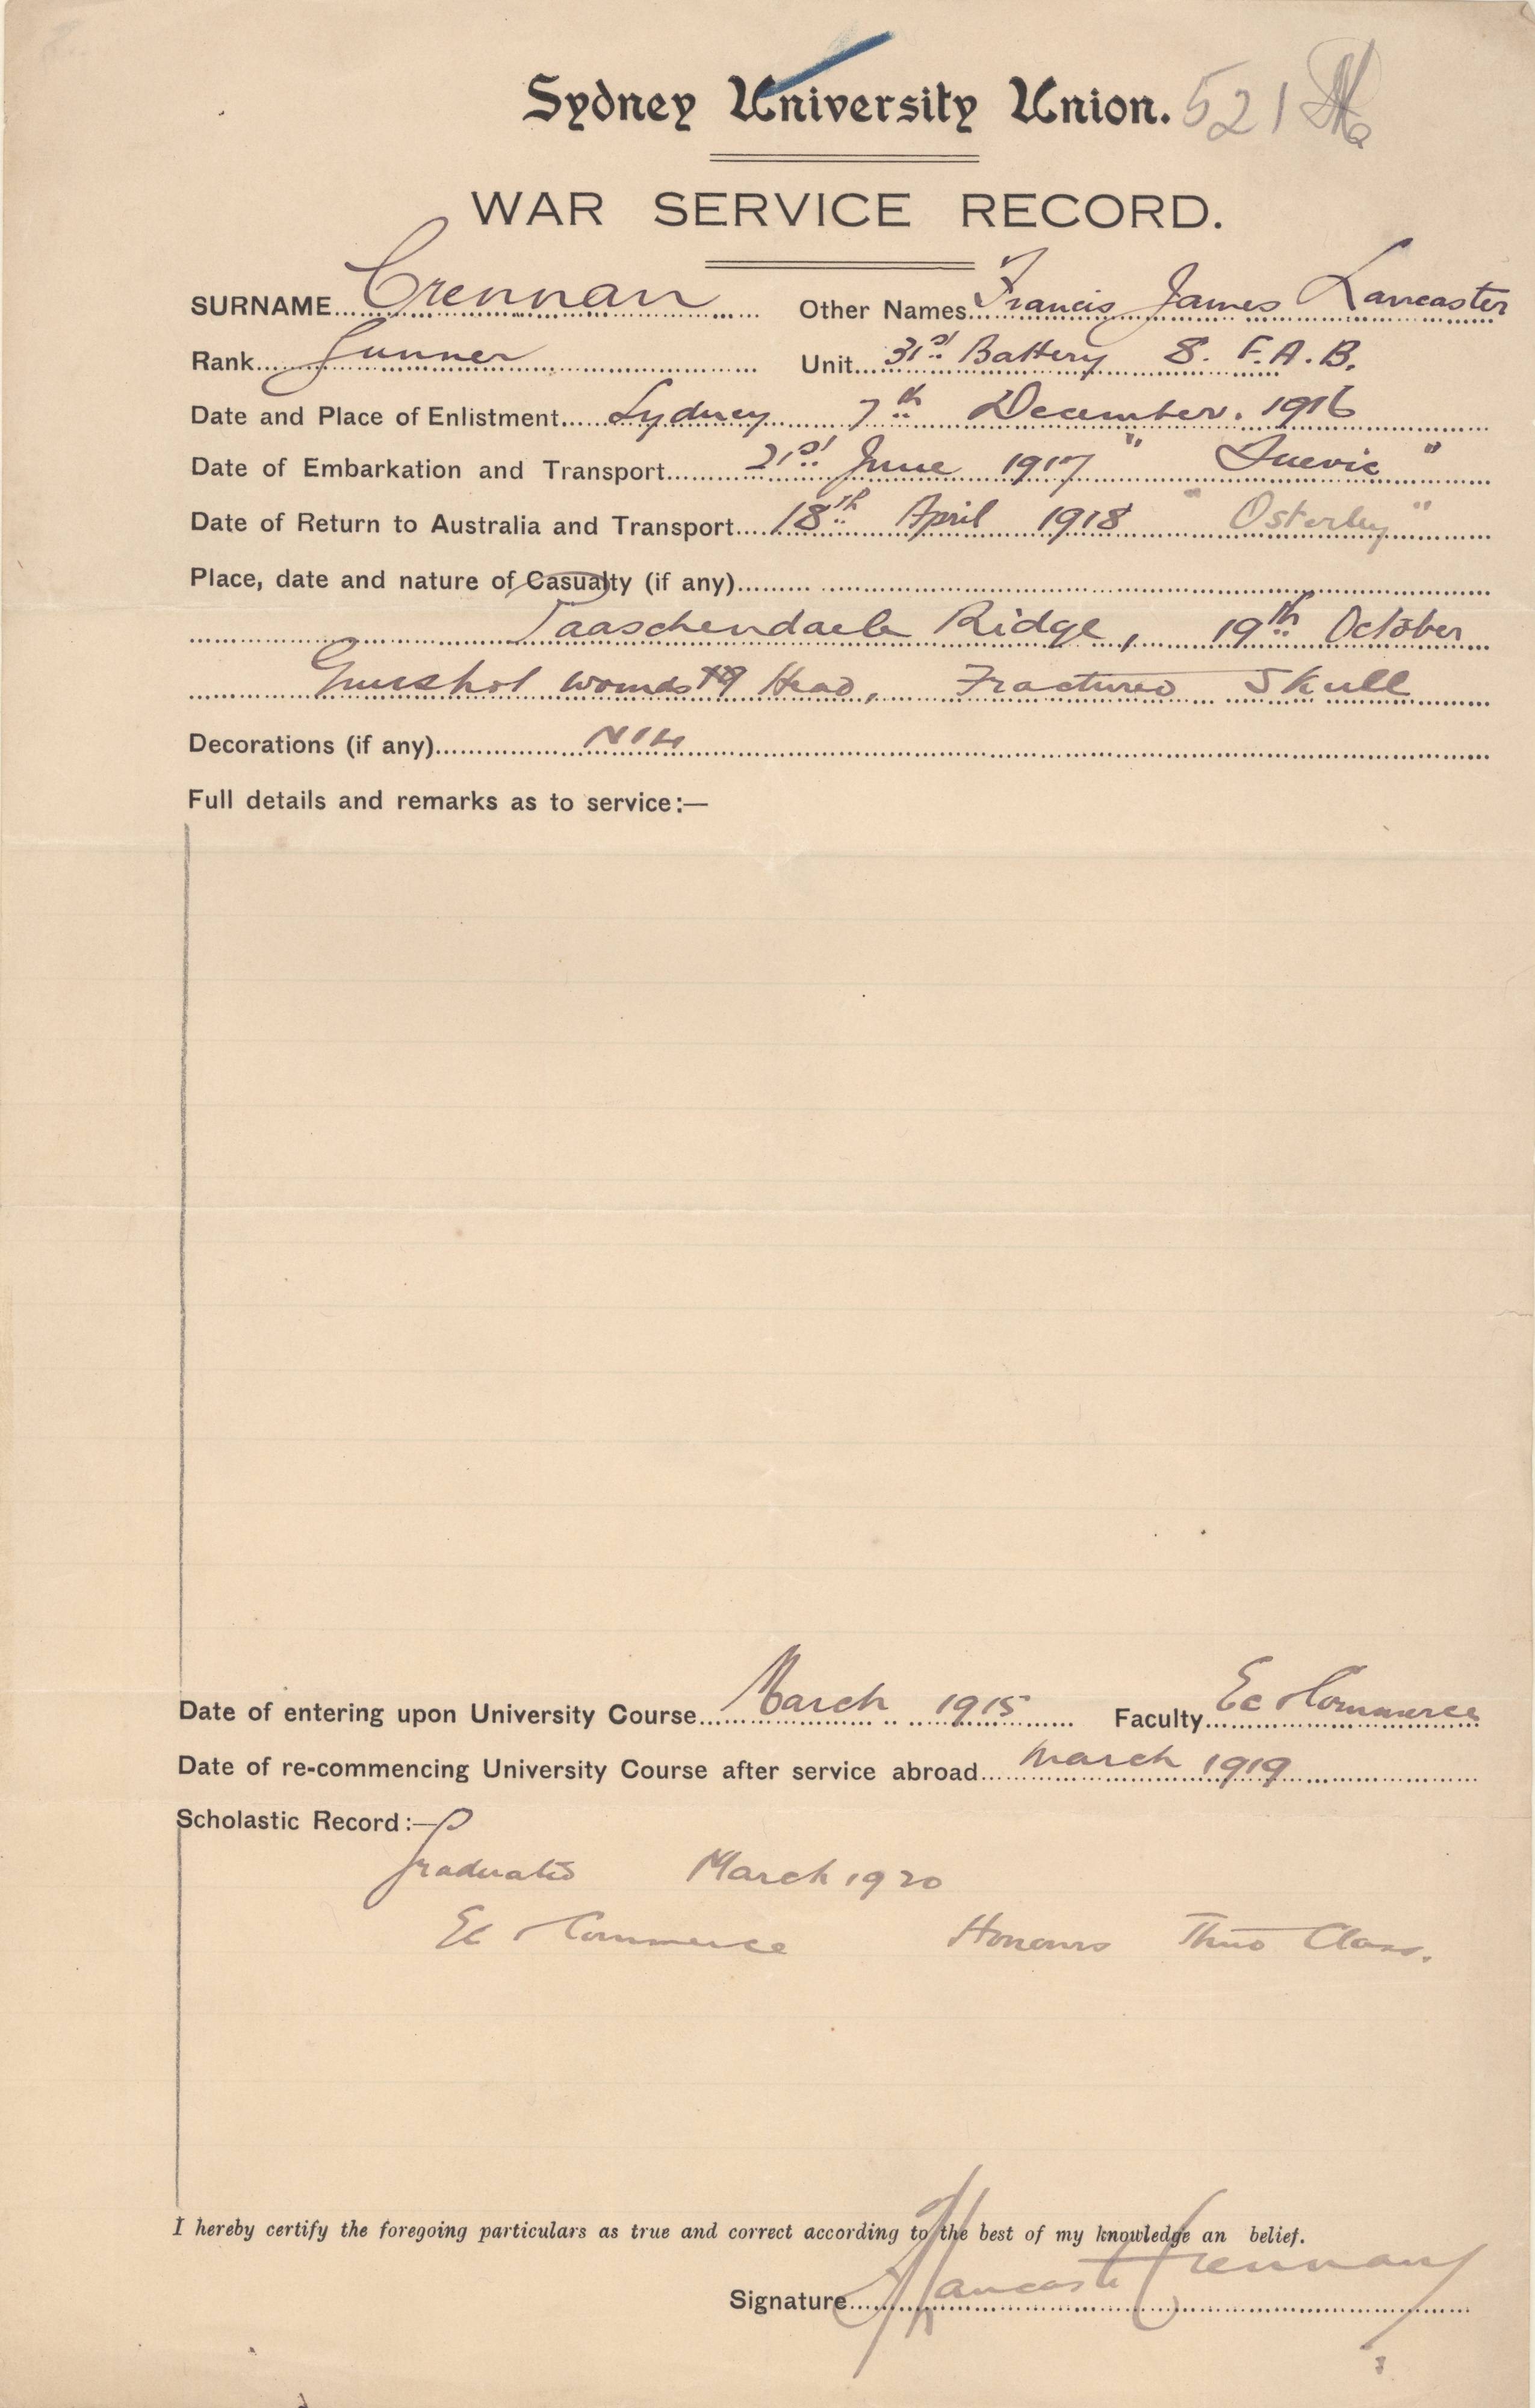 Sydney University Union. 521
WAR SERVICE RECORD.
SURNAME Crennan Other Names Francis James Lancaster
Rank Gunner Unit 31st Battery 8. F.A.B.
Date and Place of Enlistment Sydney 7th December. 1916
Date of Embarkation and Transport 21st June 1917 "Suevic"
Date of Return to Australia and Transport 18th April 1918 "Osterley"
Place, date and nature of Casualty (if any)
Paaschendaele Ridge, 19th October
Gunshot wounds Head, Fractured Skull
Decorations (if any) NIL
Full details and remarks as to service:—
Date of entering upon University Course March 1915 Faculty Ec & Commerce
Date of re-commencing University Course after service abroad March 1919
Scholastic Record:—
Graduated March 1920
Ec & Commerce Honours Third Class.
I hereby certify the foregoing particulars as true and correct according to the best of my knowledge an belief.
Signature Lancaster Crennan